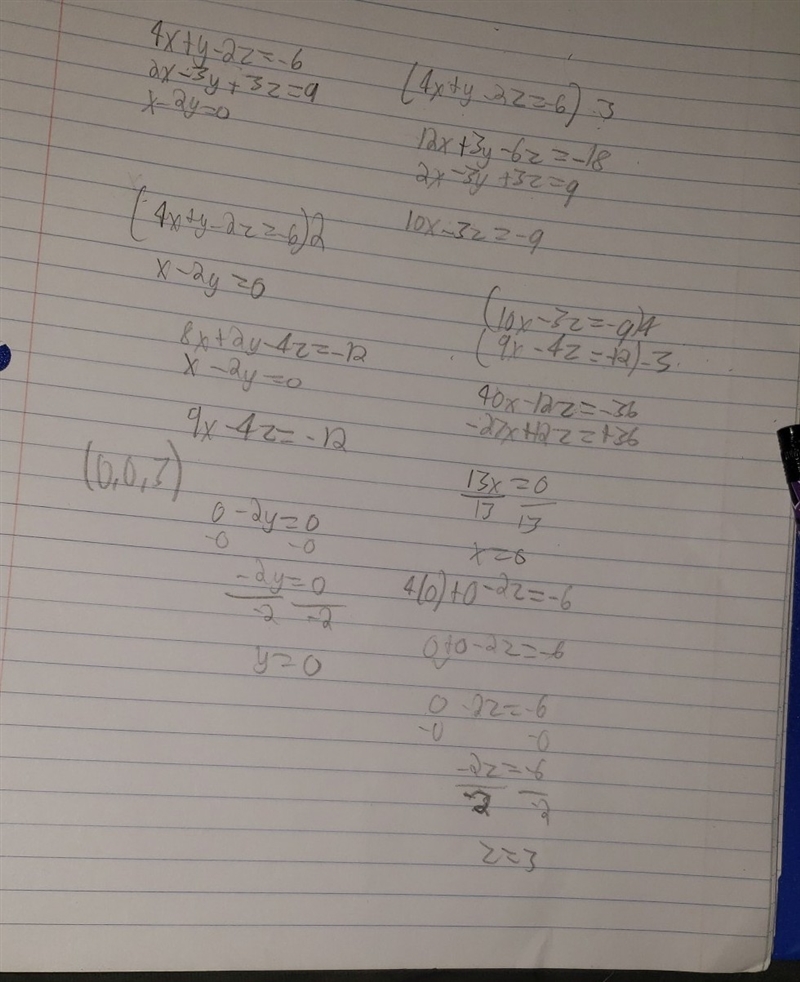 4x+y-2z=-6
2x-3y+3z=9
x-2y=0
(4x+y-2z=-6)2
x-2y=0
8x+2y-4z=-12
x-2y=0
9x-4z=-12
(0,0,3)
0-2y=0
-0 -0
-2y=0
-2 -2
y=0
(4x+y-2z=-6)3
12x+3y-6z=-18
2x-3y+3z=9
10x-3z=-9
(10x-3z=-9)4
(9x-4z=-12)-3
40x-12z=-36
-27x+12z=+36
13x=0
13 13
x=0
4(0)+0-2z=-6
0+0-2z=-6
0-2z=-6
-0 -0
-2z=-6
-2 -2
z=3